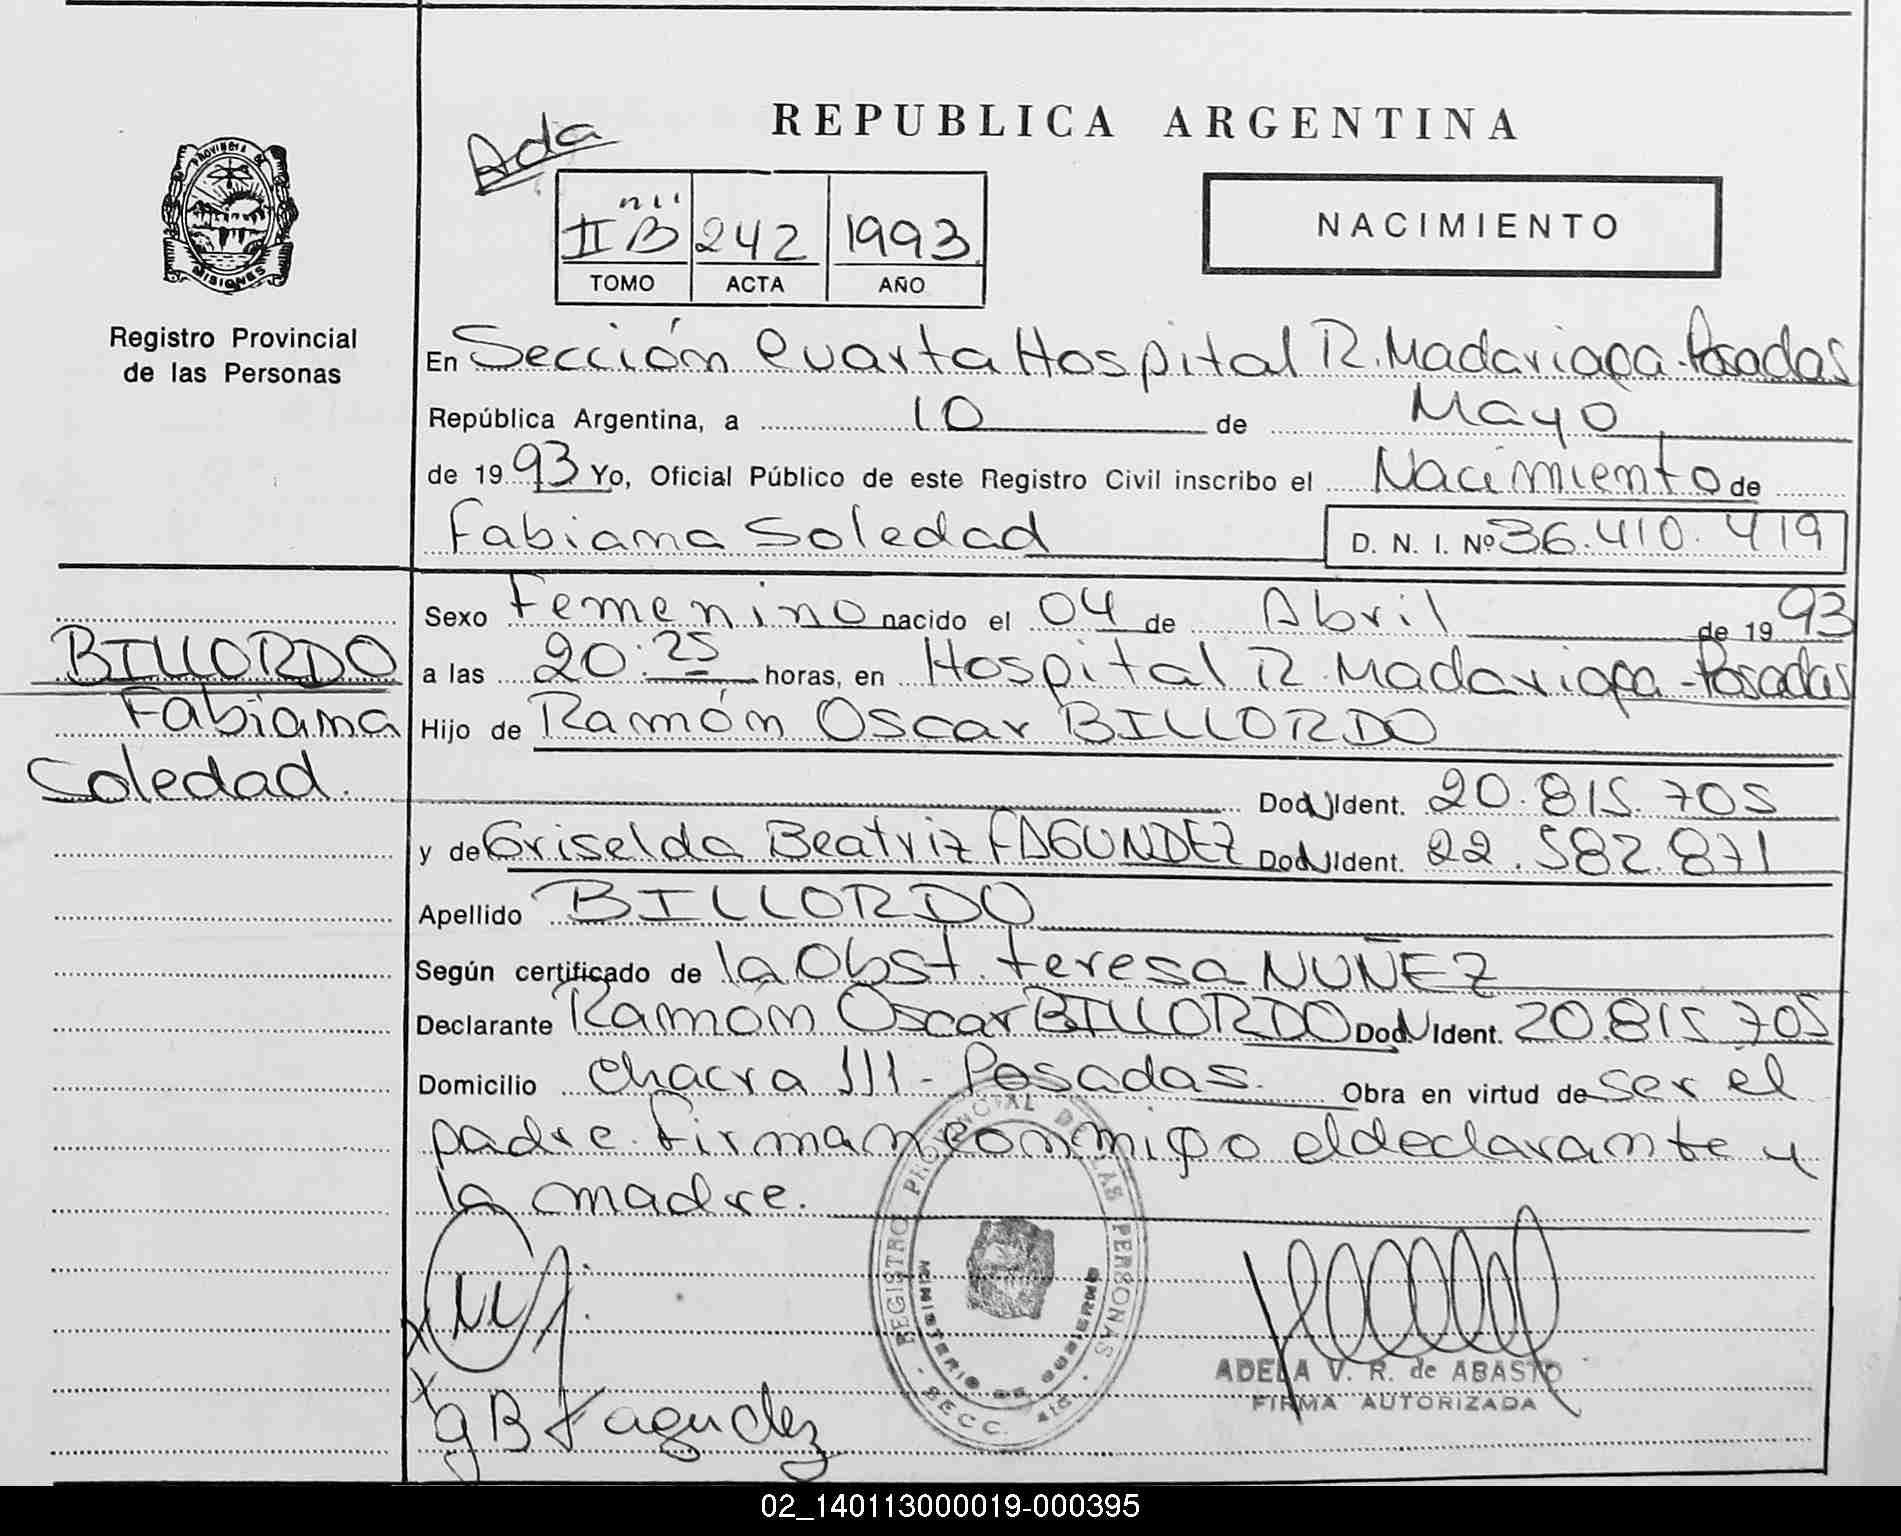 REPUBLICA ARGENTINA
Ada
PROVINCIA DE
MISIONES
II B 242 1993
TOMO ACTA AÑO
NACIMIENTO
Registro Provincial
de las Personas
En Sección Cuarta Hospital R. Madariaga - Posadas
República Argentina, a 10 de Mayo
de 1993 Yo, Oficial Público de este Registro Civil inscribo el Nacimiento de
Fabiana Soledad D. N. I. Nº 36.410.419
BILLORDO
Fabiana
Soledad.
Sexo Femenino nacido el 04 de Abril de 1993
a las 20:25 horas, en Hospital R. Madariaga - Posadas
Hijo de Ramón Oscar BILLORDO
Doc. N Ident. 20.815.705
y de Griselda Beatriz FAGUNDEZ Doc. N Ident. 22.582.871
Apellido BILLORDO
Según certificado de la Obst. Teresa NUÑEZ
Declarante Ramón Oscar BILLORDO Doc. N Ident. 20.815.705
Domicilio Chacra 111 - Posadas. Obra en virtud de ser el
padre. Firman conmigo el declarante y
la madre.
REGISTRO PROVINCIAL DE LAS PERSONAS
MINISTERIO DE GOBIERNO
SECC. 4ta.
ADELA V. R. de ABASTO
FIRMA AUTORIZADA
X
X G B Fagundez
02_140113000019-000395